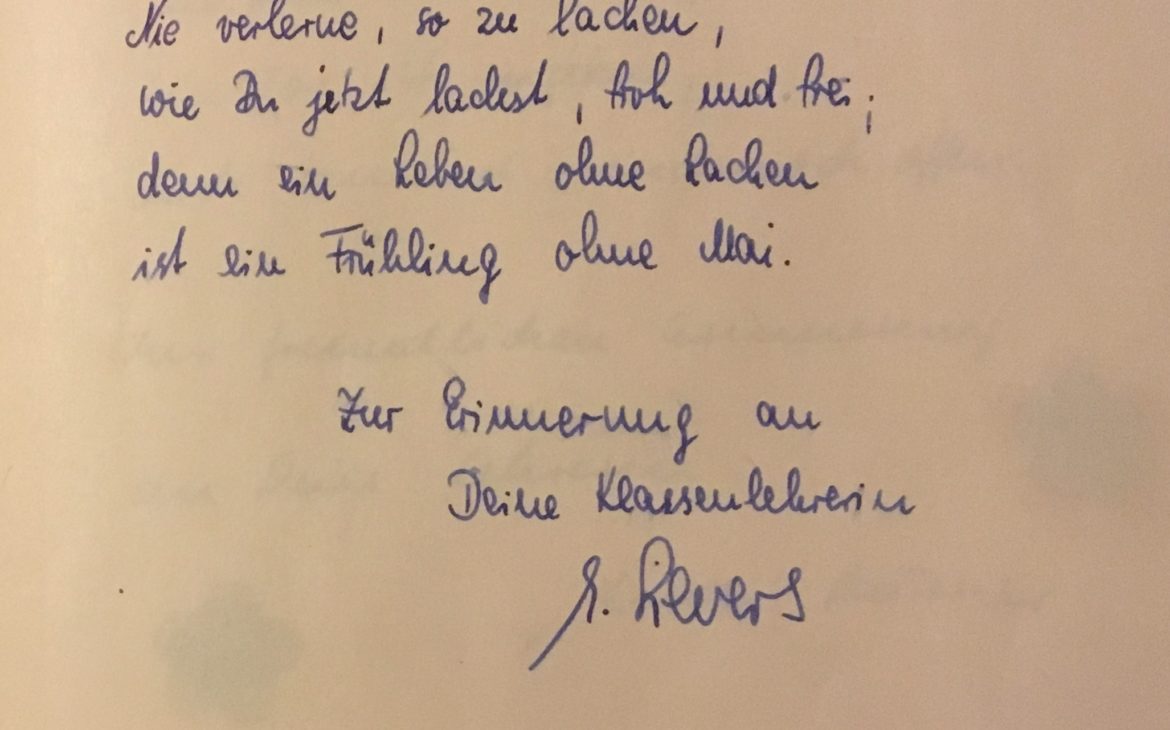 Nie verlerne, so zu lachen,
wie Du jetzt lachst, froh und frei;
denn ein Leben ohne Lachen
ist ein Frühling ohne Mai.
Zur Erinnerung an
Deine Klassenlehrerin